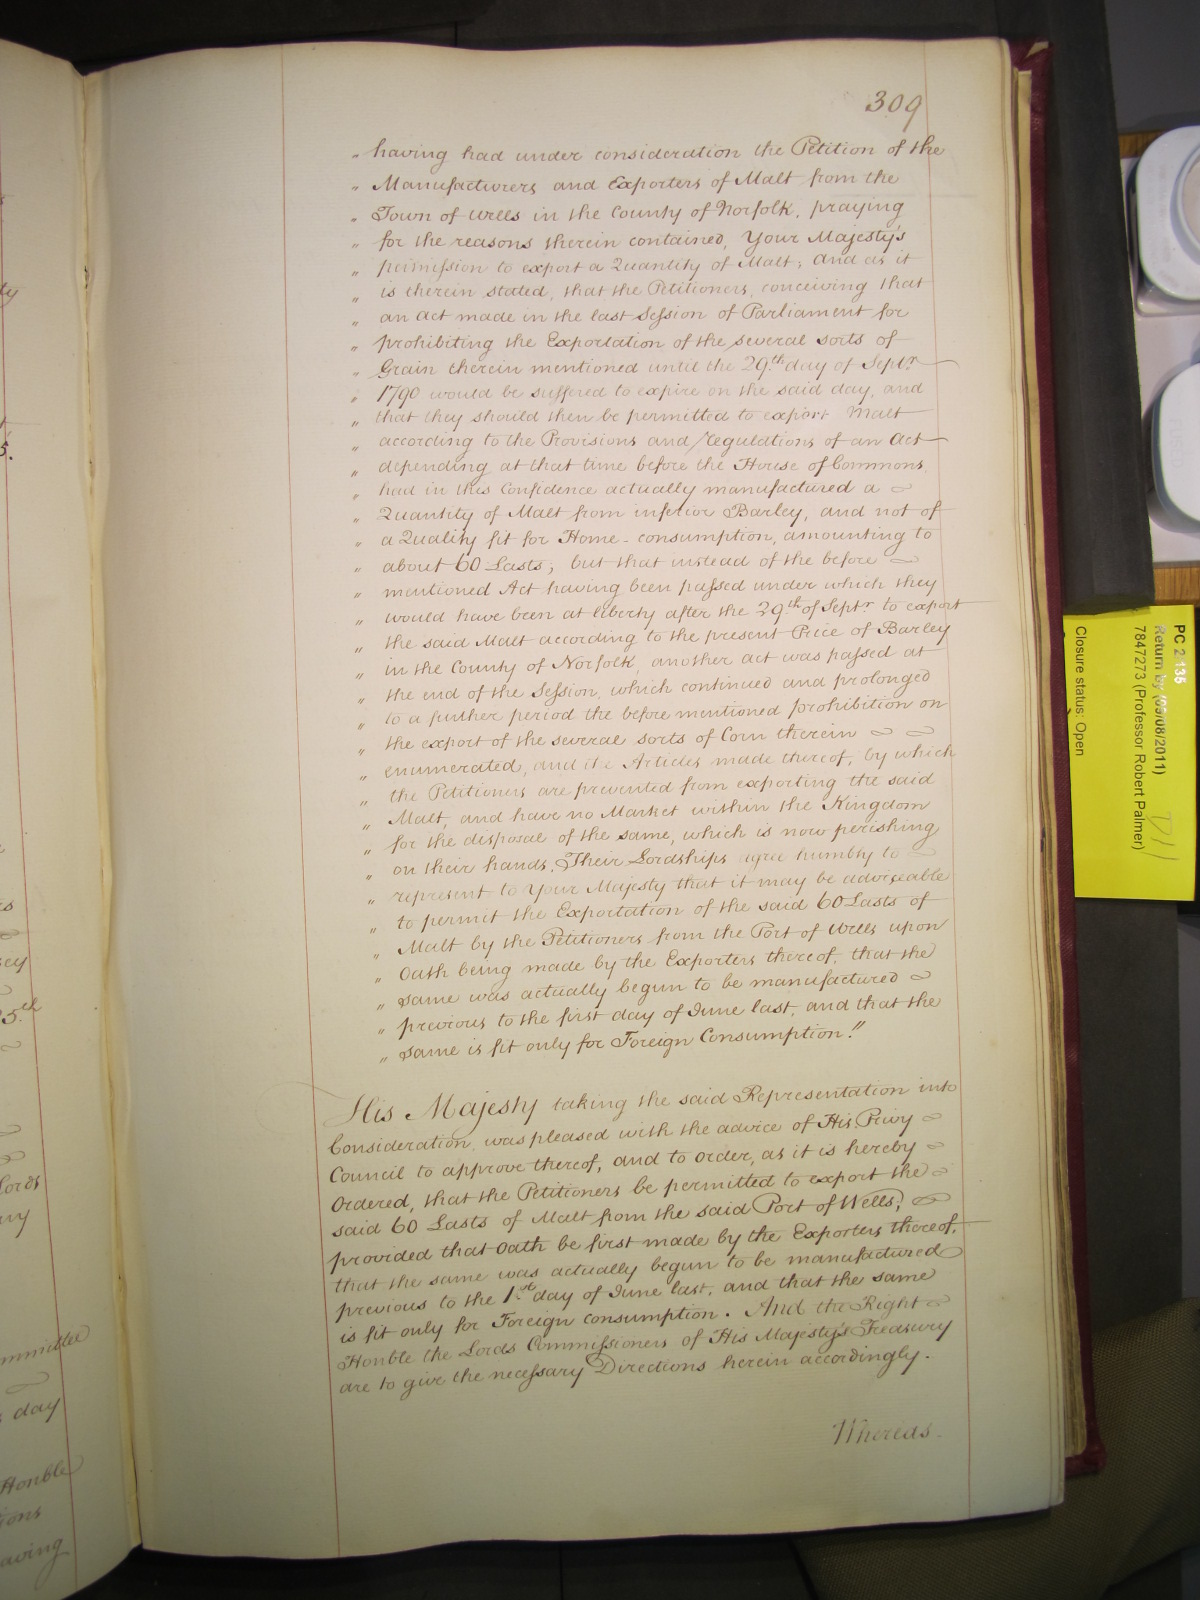 309
" having had under consideration the Petition of the
" Manufacturers and Exporters of Malt from the
" Town of Wells in the County of Norfolk, praying
" for the reasons therein contained, Your Majesty's
" permission to export a Quantity of Malt; and as it
" is therein stated, that the Petitioners, conceiving that
" an act made in the last Session of Parliament for
" prohibiting the Exportation of the several sorts of
" Grain therein mentioned until the 29th day of Septr
" 1790 would be suffered to expire on the said day, and
" that they should then be permitted to export Malt
" according to the Provisions and regulations of an Act
" depending at that time before the House of Commons,
" had in this Confidence actually manufactured a
" Quantity of Malt from inferior Barley, and not of
" a Quality fit for Home-consumption, amounting to
" about 60 Lasts; but that instead of the before
" mentioned Act having been passed under which they
" would have been at liberty after the 29th of Septr to export
" the said Malt according to the present Price of Barley
" in the County of Norfolk, another act was passed at
" the end of the Session, which continued and prolonged
" to a further period the before mentioned prohibition on
" the export of the several sorts of Corn therein
" enumerated, and the Articles made thereof, by which
" the Petitioners are prevented from exporting the said
" Malt, and have no Market within the Kingdom
" for the disposal of the same, which is now perishing
" on their hands, Their Lordships agree humbly to
" represent to Your Majesty that it may be adviseable
" to permit the Exportation of the said 60 Lasts of
" Malt by the Petitioners from the Port of Wells upon
" Oath being made by the Exporters thereof, that the
" same was actually begun to be manufactured
" previous to the first day of June last, and that the
" same is fit only for Foreign Consumption."
His Majesty taking the said Representation into
Consideration, was pleased with the advice of His Privy
Council to approve thereof, and to order, as it is hereby
Ordered, that the Petitioners be permitted to export the
said 60 Lasts of Malt from the said Port of Wells,
provided that Oath be first made by the Exporters thereof,
that the same was actually begun to be manufactured
previous to the 1st day of June last, and that the same
is fit only for Foreign consumption. And the Right
Honble the Lords Commissioners of His Majesty's Treasury
are to give the necessary Directions herein accordingly.
Whereas.
PC 2 135
Return by (05/08/2011)
7847273 (Professor Robert Palmer)
Closure status: Open
D11